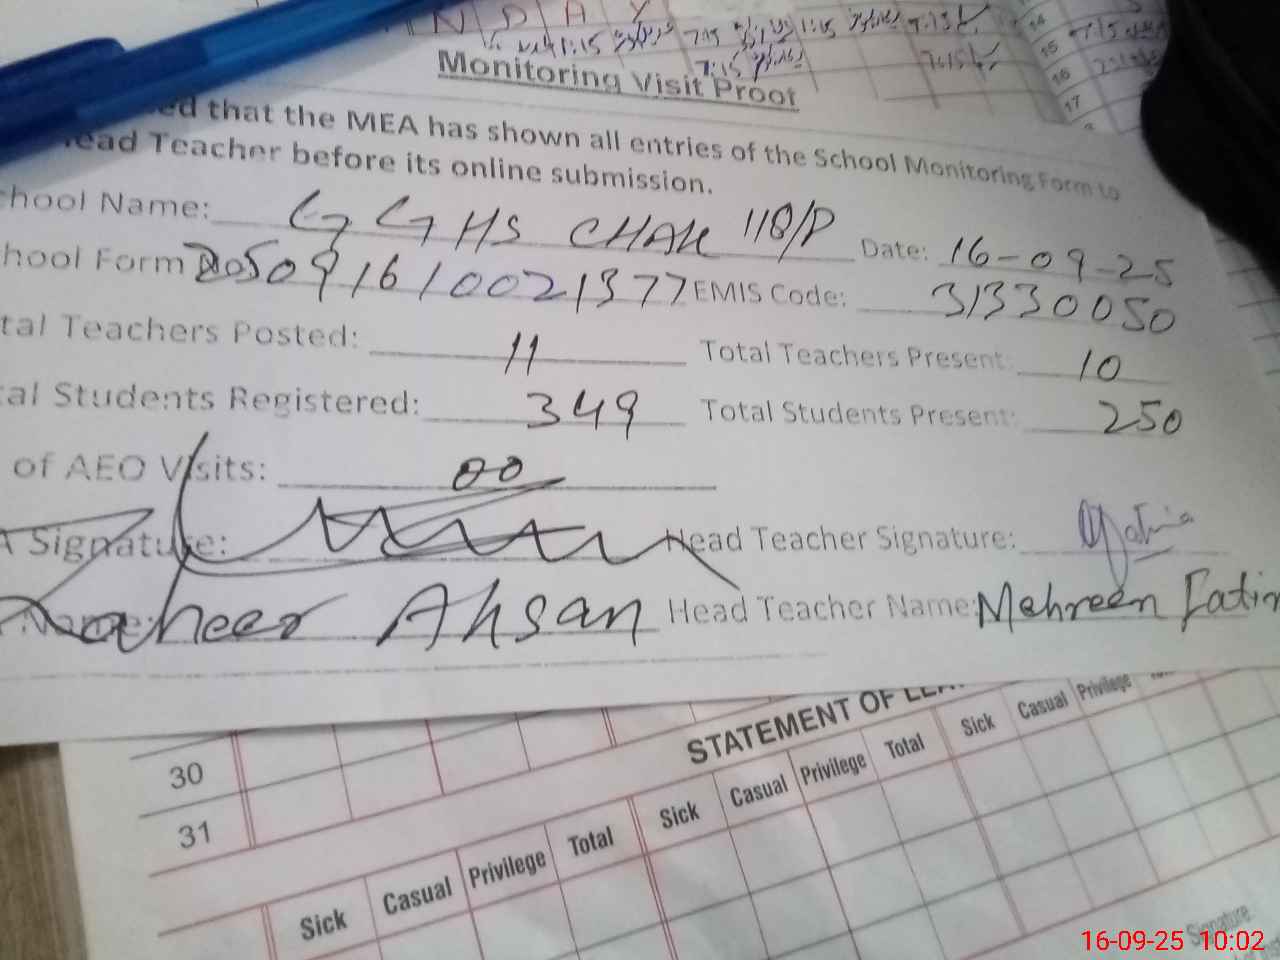 N D A Y
14
7:15 7:15 1:15 7:15
15 7:15
7:15 7:15
16
17
Monitoring Visit Proof
ed that the MEA has shown all entries of the School Monitoring Form to
ead Teacher before its online submission.
chool Name: GGHS CHAK 118/P Date: 16-09-25
hool Form 205091610021377 EMIS Code: 31330050
tal Teachers Posted: 11 Total Teachers Present: 10
tal Students Registered: 349 Total Students Present: 250
of AEO Visits: 00
A Signature: Head Teacher Signature:
Name: Ahsan Head Teacher Name: Mehreen Fatim
STATEMENT OF LEA
30
31
Sick Casual Privilege Total Sick Casual Privilege Total Sick Casual Privilege
Signature
16-09-25 10:02